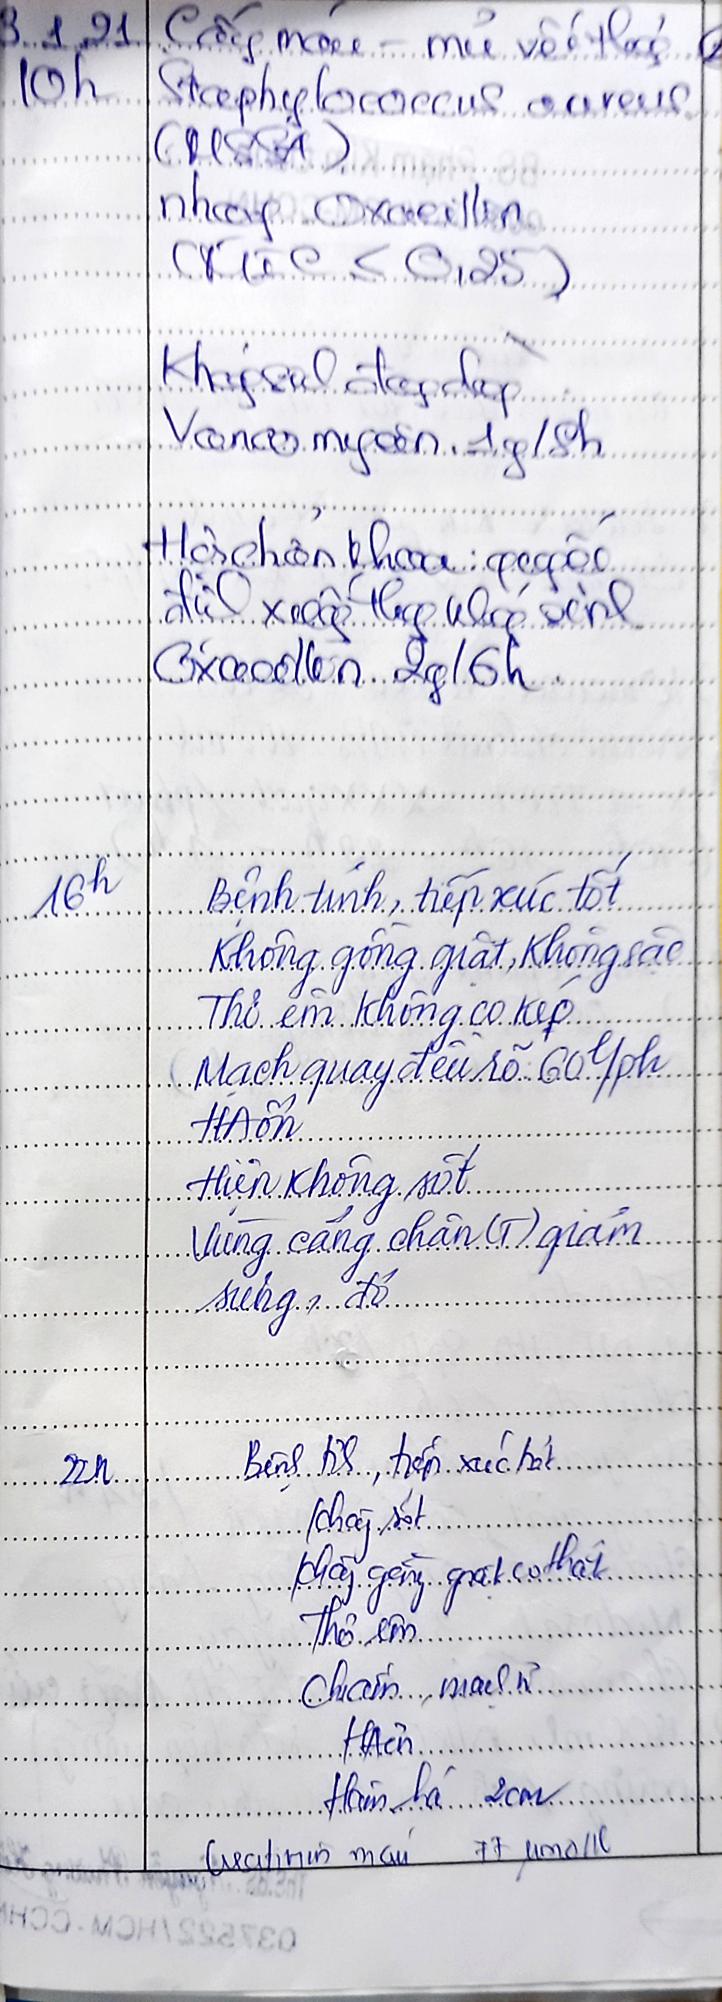 3.1.21 Cấy máu - mủ vết thg
10h Staphylococcus aureus
(MSSA)
nhạy Oxacillin
(MIC ≤ 0,25)
Kháng sinh đang dùng
Vancomycin 1g/8h
Hội chẩn khoa:
đề xuất thay kháng sinh
Oxacillin 2g/6h
16h Bệnh tỉnh, tiếp xúc tốt
Không gồng giật, Không sặc
Thở êm không co kéo
Mạch quay đều rõ 60 l/ph
HA ổn
Hiện không sốt
Vùng cẳng chân (T) giảm
sưng, đỏ
22h Bệnh tỉnh, tiếp xúc tốt
không sốt
không gồng giật co thắt
Thở êm
Chi ấm, mạch rõ
HA ổn
Hám há 2cm
Creatinin máu 77 µmol/l
037522/HCM-CCHN